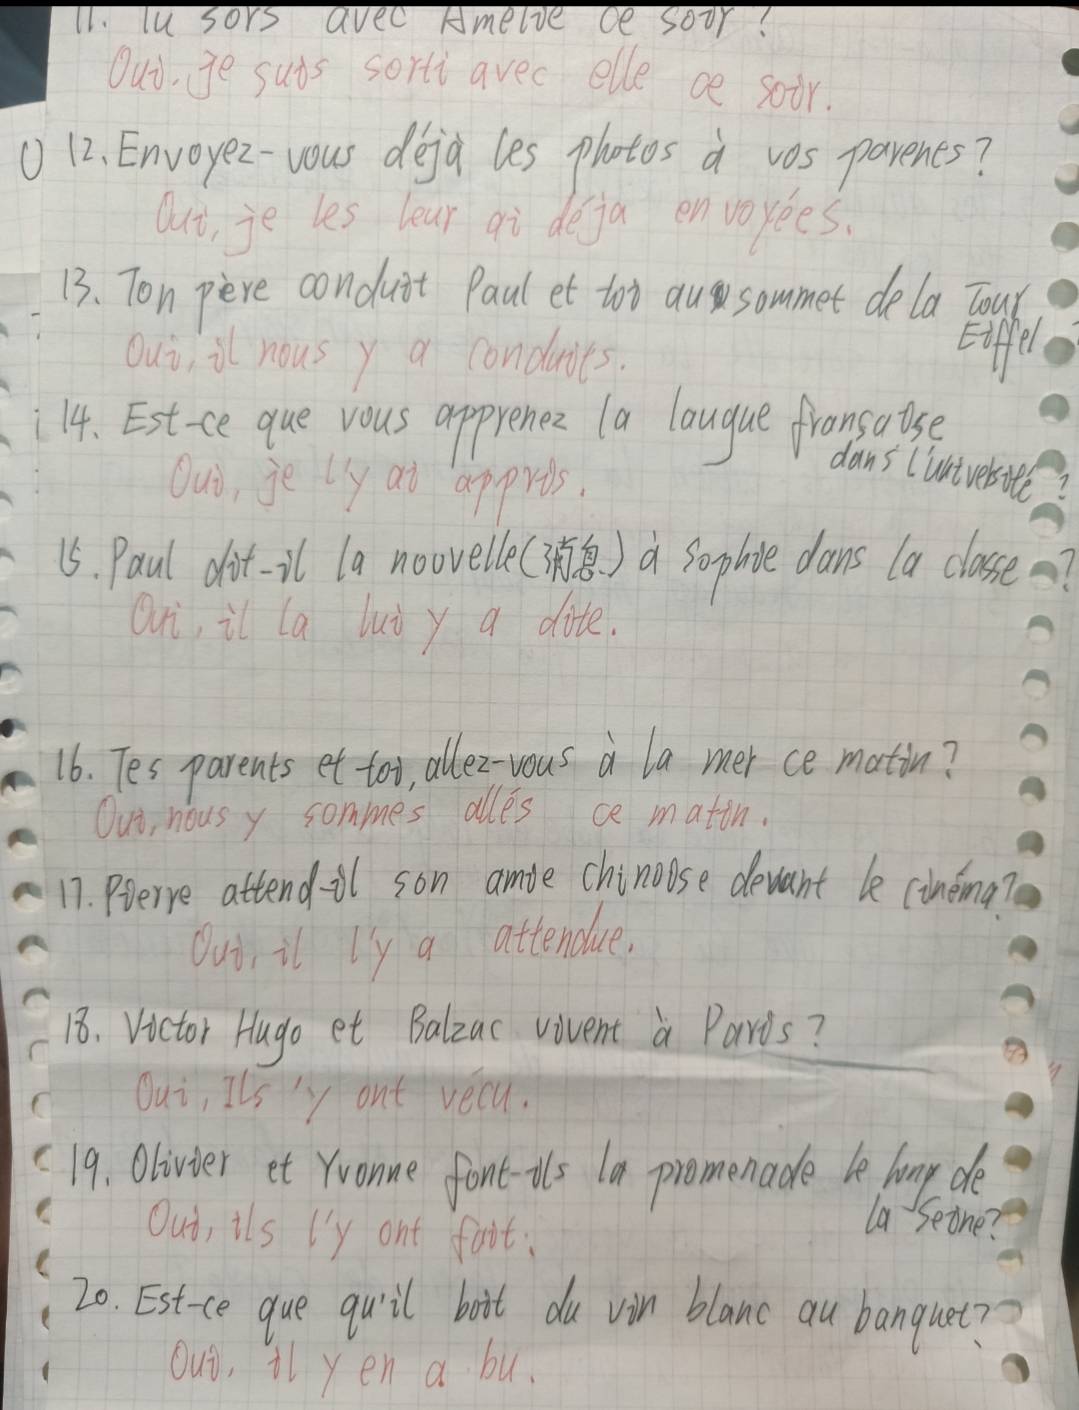 11. Tu sors avec Amélie ce soir?
Oui. Je suis sorti avec elle ce soir.
12. Envoyez-vous déjà les photos à vos parents?
Oui, je les leur ai déja envoyées.
13. Ton père conduit Paul et toi au sommet de la Tour
Eiffel
Oui, il nous y a conduits.
14. Est-ce que vous apprenez la laugue française
dans l'université?
Oui, je l'y ai appris.
15. Paul dit-il la noovelle (消息) à Sophie dans la classe?
Oui, il la lui y a dite.
16. Tes parents et toi, allez-vous à la mer ce matin?
Oui, nous y sommes allés ce matin.
17. Pierre attend-il son amie chinoise devant le cinéma?
Oui, il l'y a attendue.
18. Victor Hugo et Balzac vivent à Paris?
Oui, Ils 'y ont vécu.
19. Olivier et Yvonne font-ils la promenade le long de
la Seine?
Oui, ils l'y ont fait.
20. Est-ce que qu'il boit du vin blanc au banquet?
Oui, il y en a bu.